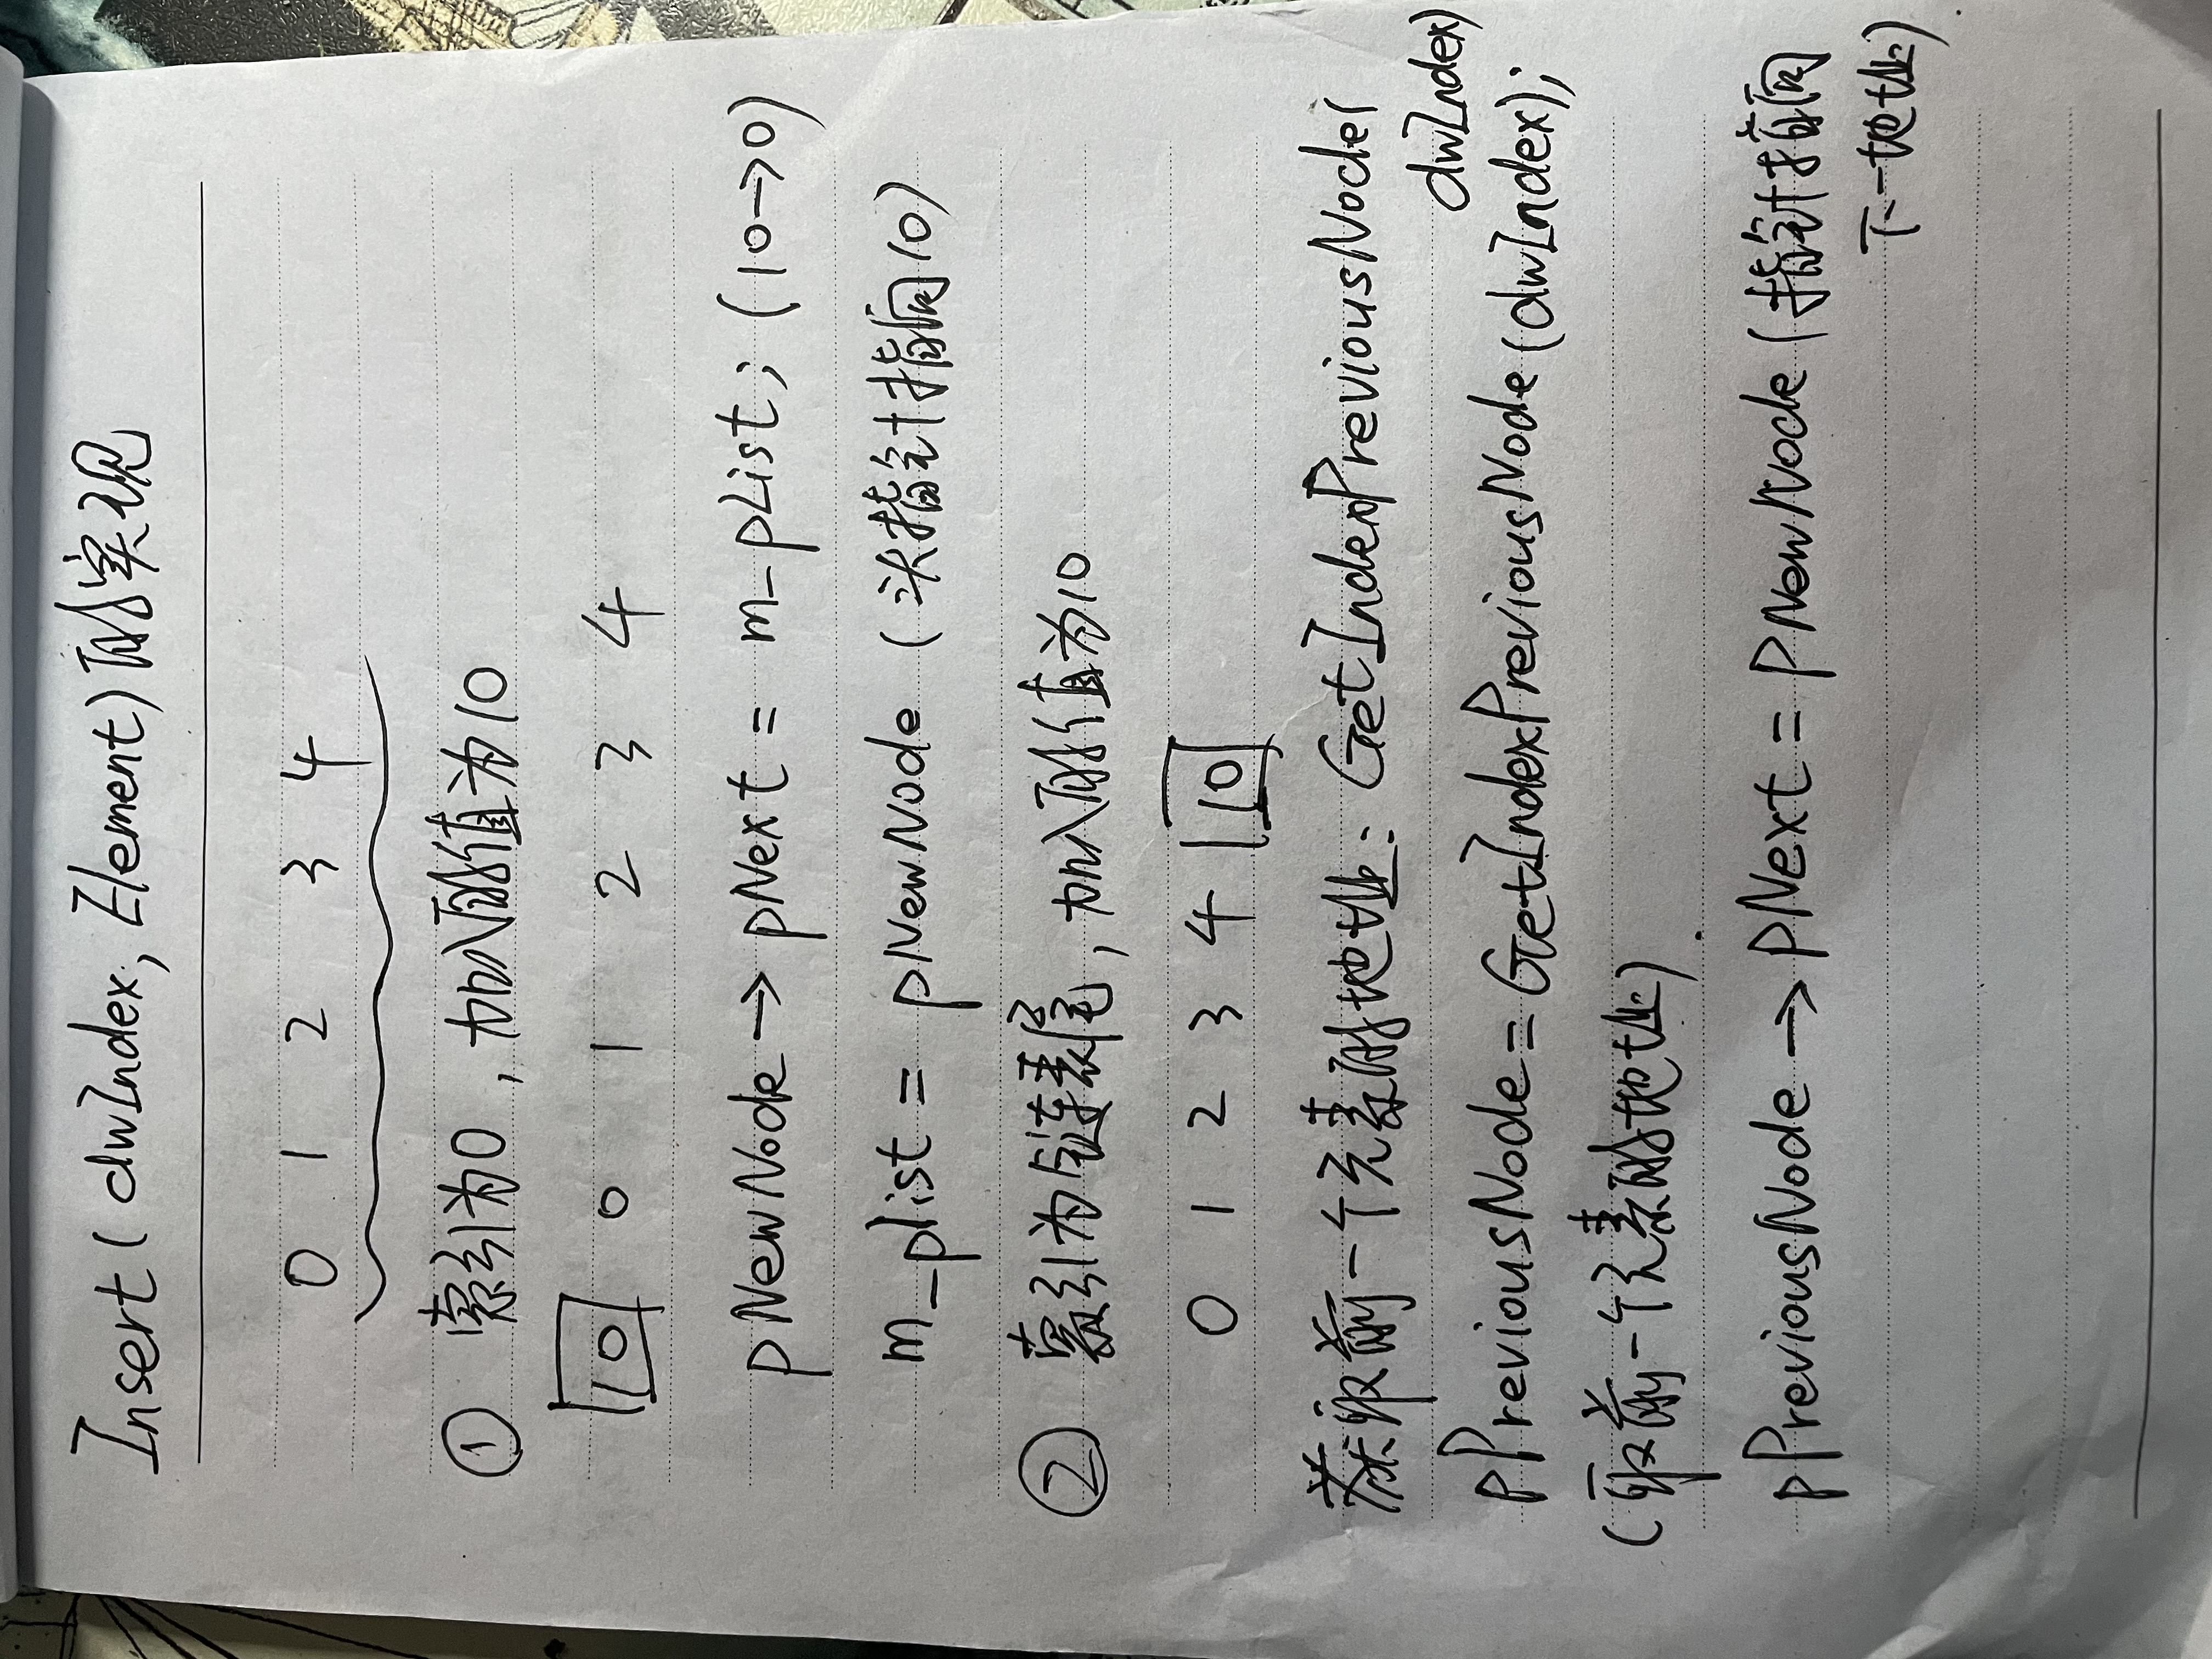 Insert(dwIndex, Element)的实现
0 1 2 3 4
① 索引为0,加入的值为10
10 0 1 2 3 4
pNewNode→pNext = m_pList; (10→0)
m_plist = pNewNode (头指针指向10)
② 索引为链表尾,加入的值为10
0 1 2 3 4 10
获取前一个元素的地址: GetIndexPreviousNode(
dwIndex)
pPreviousNode = GetIndexPreviousNode(dwIndex);
(取前一个元素的地址).
pPreviousNode → pNext = pNewNode (指针指向
下一地址)